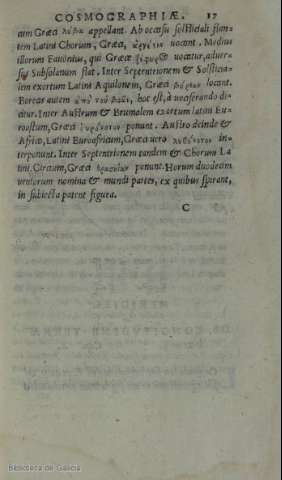 COSMOGRAPHIÆ. 17
eum Græci λίβα appellant. Ab occasu solstitiali flan-
tem Latini Chorum, Græci, ἀργέστην uocant. Medius
illorum Fauonius, qui Græce ζέφυρος uocatur, aduer-
sus Subsolanum flat. Inter Septentrionem & Solstitia-
lem exortum Latini Aquilonem, Græci βορέαν locant.
Boreas autem ἀπὸ τοῦ βοᾶν, hoc est, à uociferando di-
citur. Inter Austrum & Brumalem exortum latini Eu-
roaustum, Græci ponunt. Austro deinde &
Africo, Latini Euroafricum, Græci uero in-
terponunt. Inter Septentrionem tandem & Chorum La
tini Circium, Græci θρασκίαν ponunt. Horum duodecim
uentorum nomina & mundi partes, ex quibus spirant,
in subiecta patent figura.
C
Biblioteca de Galicia